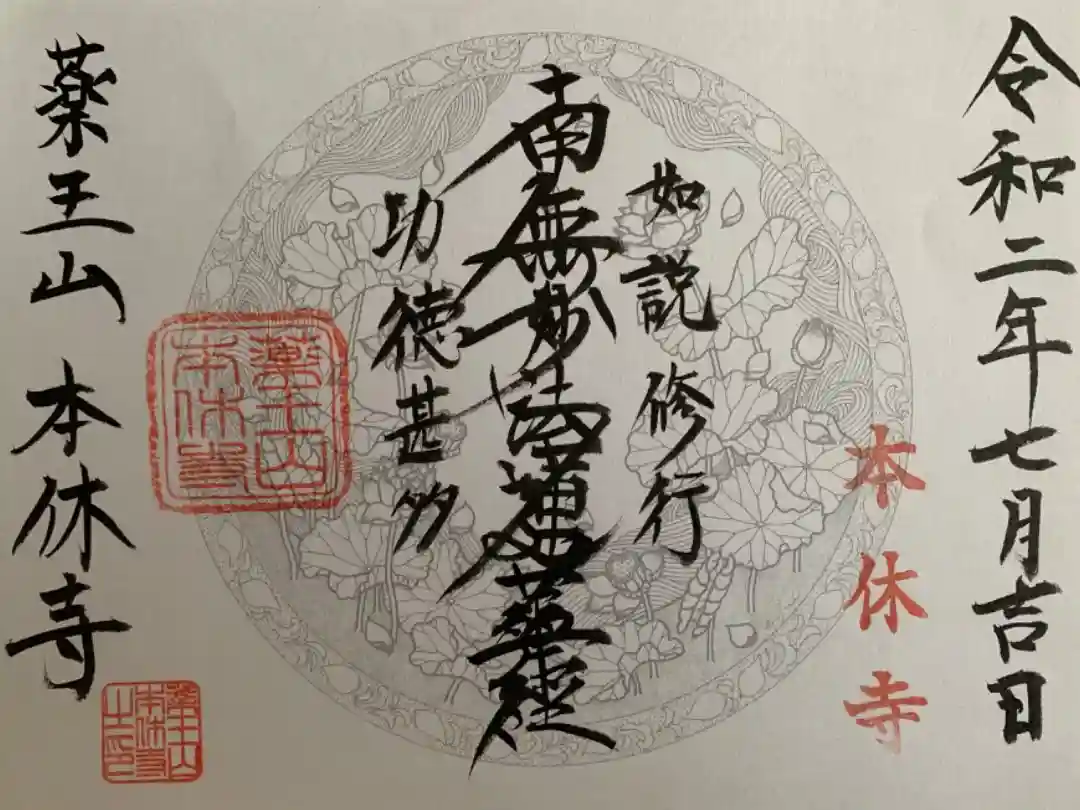 令和二年七月吉日
本休寺
如説修行
南無妙法蓮華経
功徳甚多
薬王山
本休寺
薬王山 本休寺
薬王山本休寺之印